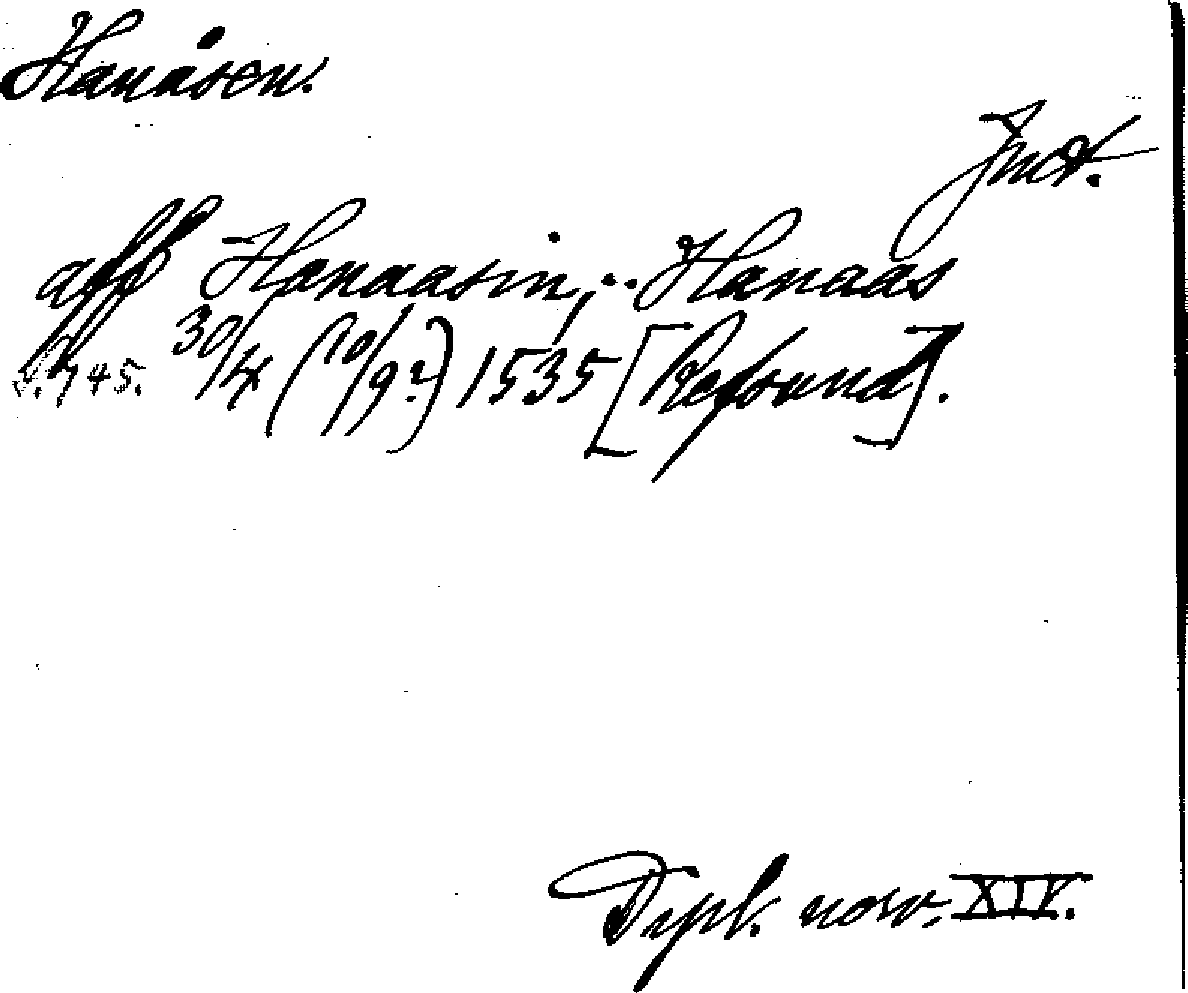 Hanåsen.
Jmt.
aff Hanaasin, .. Hanaas
S. 745. 30/4 (10/9?) 1535 [Refsund].
Dipl. norv. XIV.